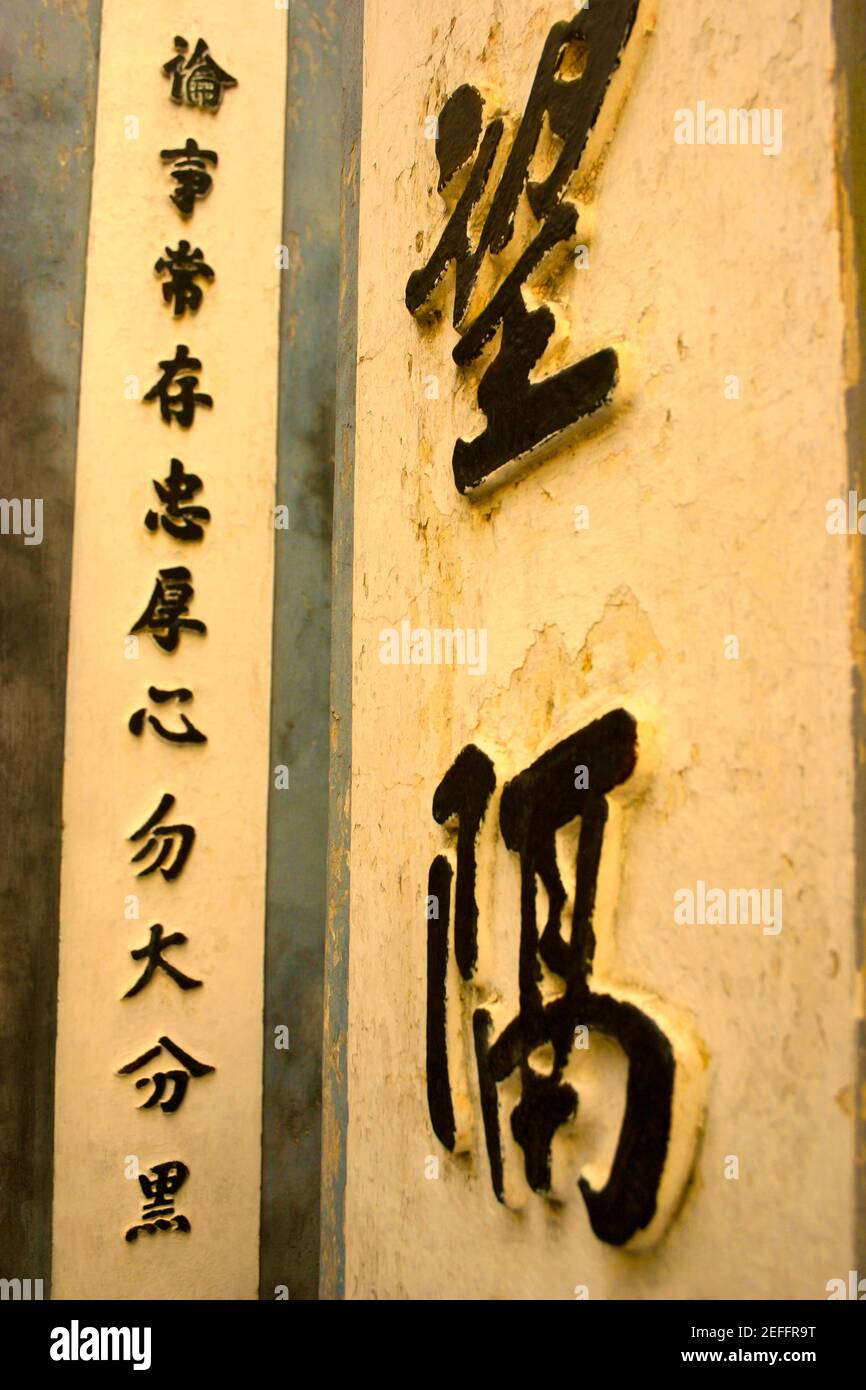 望隔
論事常存忠厚心勿大分黑
alamy
Image ID: 2EFFR9T
www.alamy.com